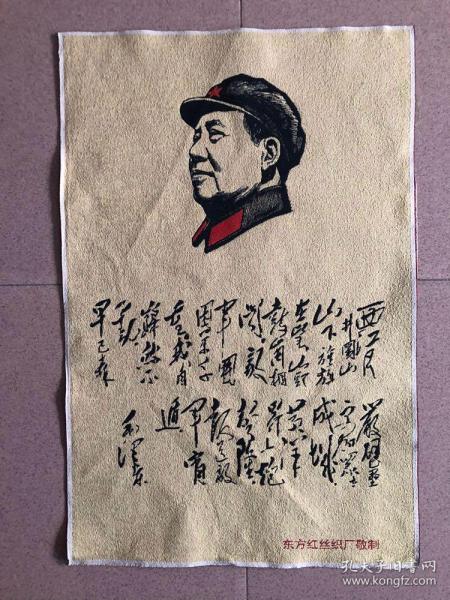 西江月
井岡山
山下旌旗
在望山頭
鼓角相
聞敵
軍圍
困万千
重我自
巋然不
動
早已森
嚴壁壘
更加众志
成城
黄洋
界上炮
声隆
報道敌
軍宵
遁
毛泽东
东方红丝织厂敬制
孔夫子旧书网
www.kongfz.com